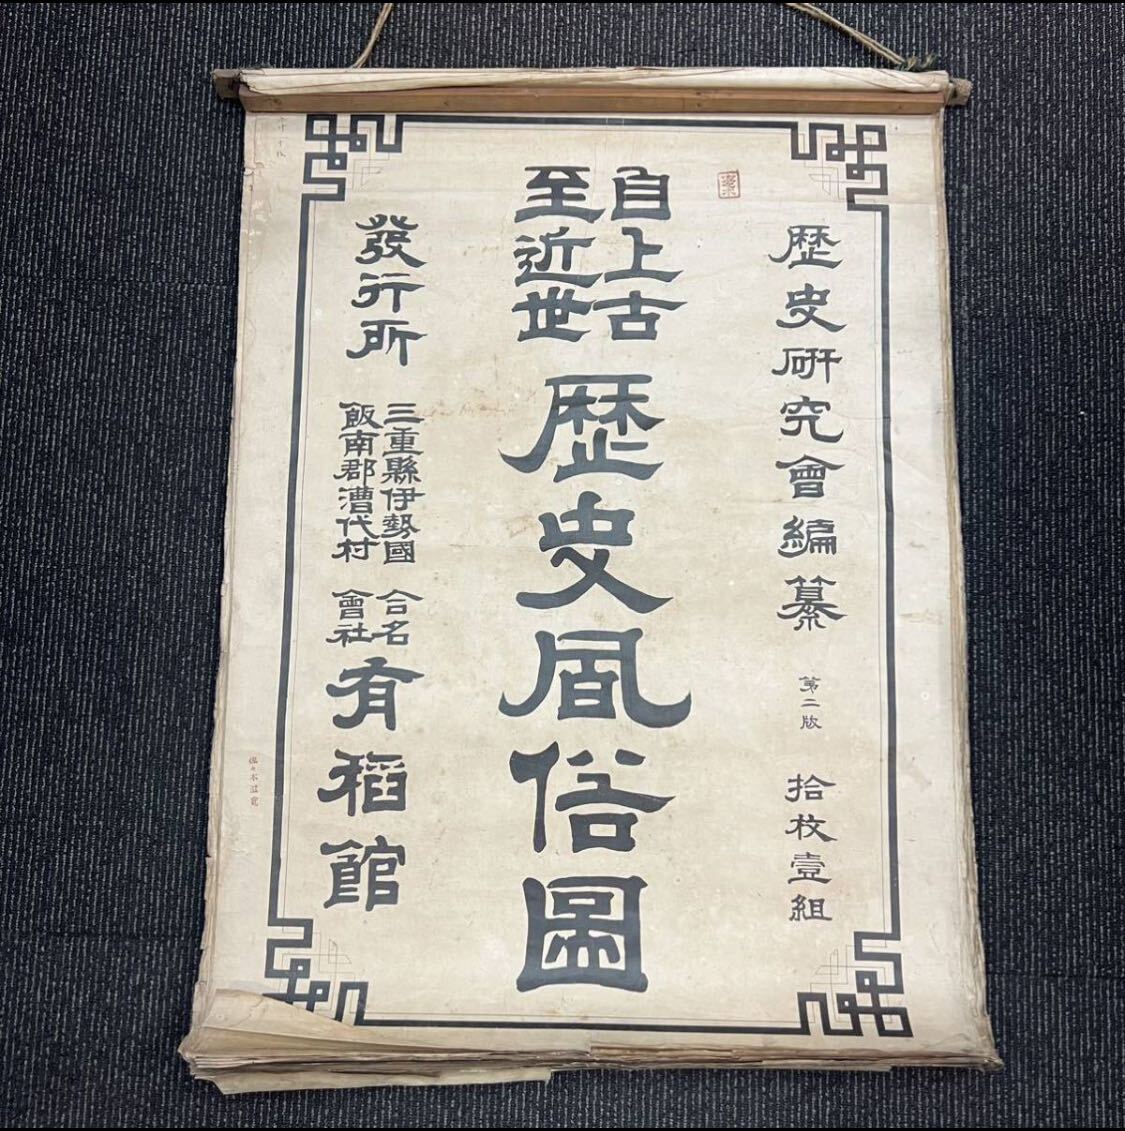 歴史研究會編纂 第二版 拾枚壹組
自上古
至近世
歴史風俗圖
發行所
三重縣伊勢國
飯南郡漕代村
合名
會社
有稻館